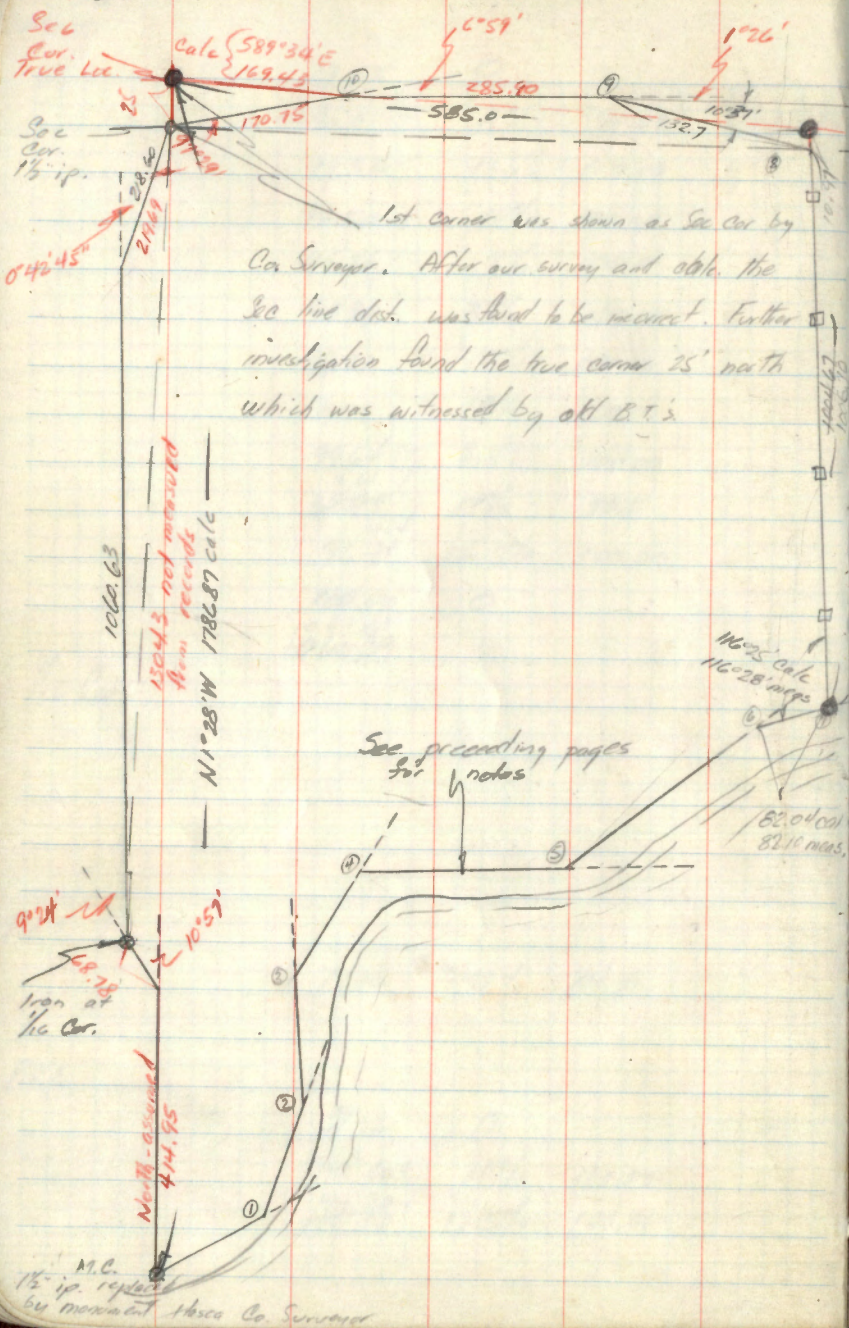 Sec
Cor.
True Loc.
Calc { S89°34'E
169.43
6°59'
1°26'
10
285.90
9
585.0
10°37'
132.7
25
Sec
Cor.
1½ ip.
170.75
8
28.60
219.69
0°42'45"
1st corner was shown as Sec cor by
Co. Surveyor. After our survey and calc. the
Sec line dist. was found to be incorrect. Further
investigation found the true corner 25' north
which was witnessed by old B.T.'s
1060.63
1304.3 not measured
from records
N1°28'W 1786.87 calc
116°25' calc
116°28' meas
6
7
See preceeding pages
for notes
82.04 cal
82.10 meas.
4
5
9°24'
10°57'
68.78
Iron at
1/16 Cor.
3
2
North-assumed
414.95
1
M.C.
1½" ip. replaced
by monument Itasca Co. Surveyor